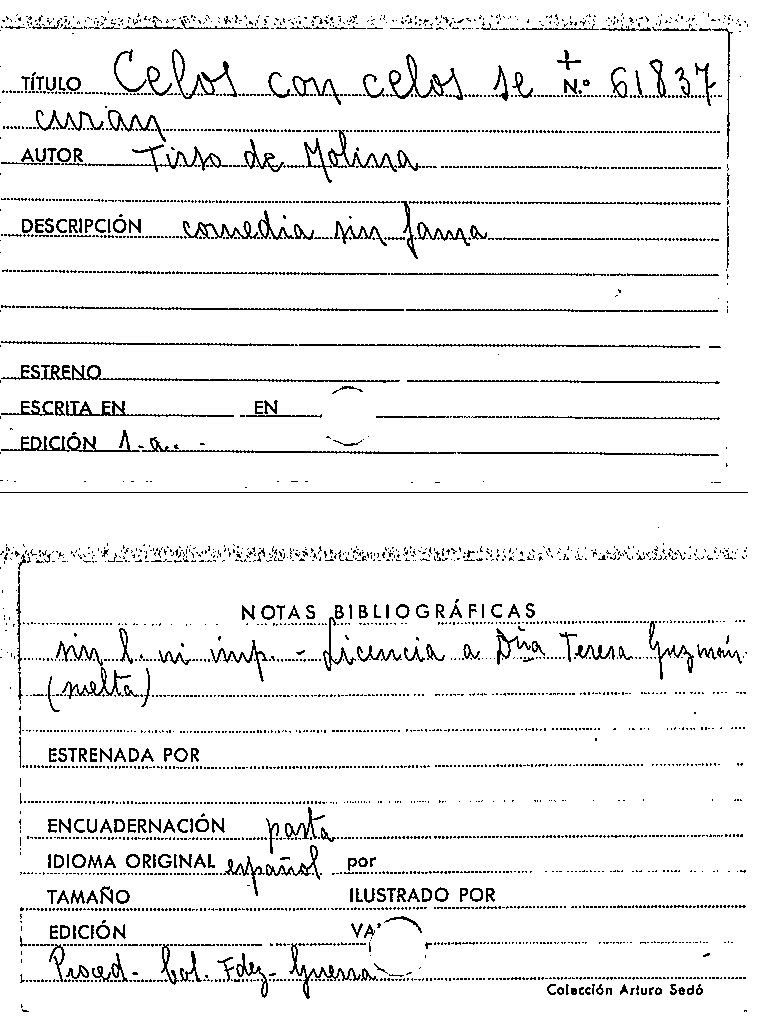 TÍTULO Celos con celos se + N.º 61837
curan
AUTOR Tirso de Molina
DESCRIPCIÓN comedia sin fama
ESTRENO
ESCRITA EN EN
EDICIÓN 1-a.. -
NOTAS BIBLIOGRÁFICAS
sin l. ni imp. - Licencia a Dña Teresa Guzmán
(suelta)
ESTRENADA POR
ENCUADERNACIÓN pasta
IDIOMA ORIGINAL español por
TAMAÑO ILUSTRADO POR
EDICIÓN VA
Proced- Col. Fdez- Guerra
Colección Arturo Sedó